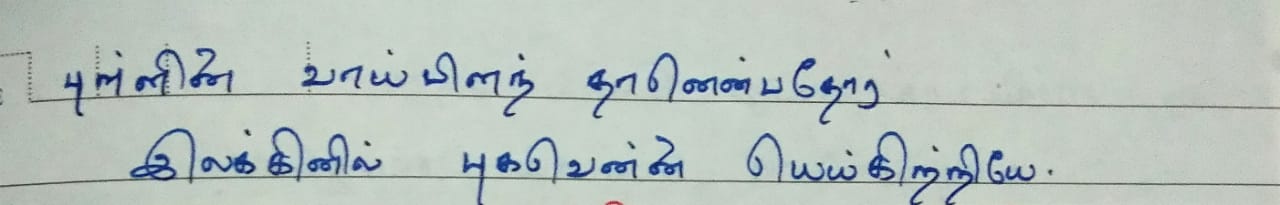 புள்ளின் வாய்பிளந் தானென்பதோர்
இலக்கினில் புகவென்னை யெய்கிற்றியே.